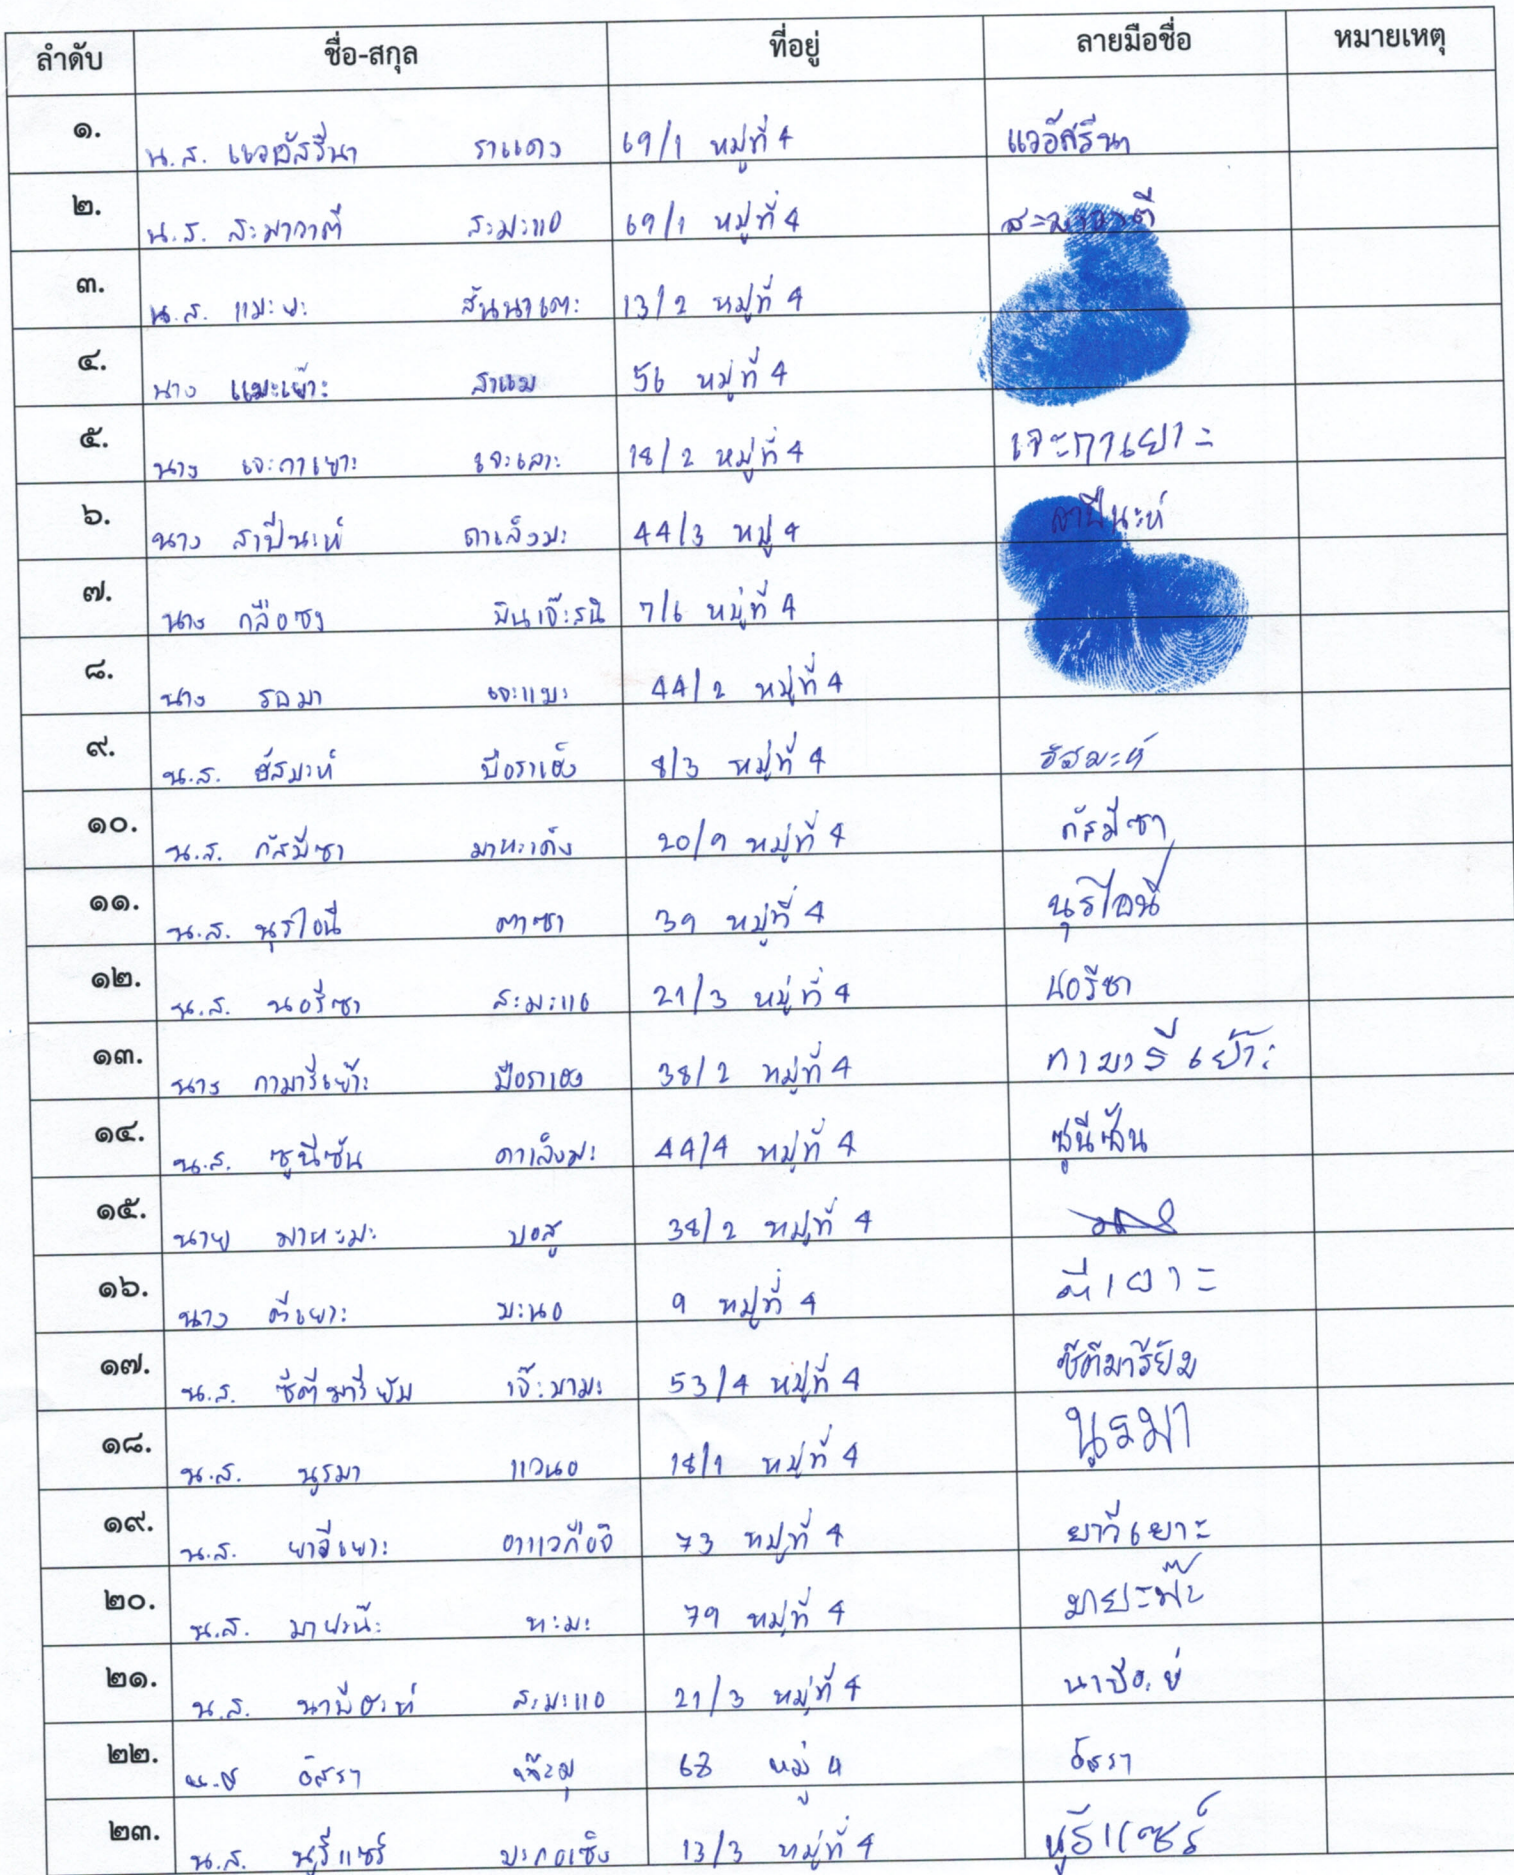 ลำดับ ชื่อ-สกุล ที่อยู่ ลายมือชื่อ หมายเหตุ
๑. น.ส. แวอัสรีนา ราแดง 69/1 หมู่ที่ 4 แวอัศรีนา
๒. น.ส. สะมาวาตี สะมะแอ 69/1 หมู่ที่ 4
๓. น.ส. แมะ สันนาเตะ 13/2 หมู่ที่ 4
๔. นาง แมะเย๊าะ สาแม 56 หมู่ที่ 4
๕. นาง เจะกาเยาะ เจะเลาะ 18/2 หมู่ที่ 4 เจะกาเยาะ
๖. นาง สาปีนะห์ ดาเล็งมะ 44/3 หมู่ 4 สาปีนะห์
๗. นาง กลือซง บินเจ๊ะสนิ 7/6 หมู่ที่ 4
๘. นาง รอมา เจะแบะ 44/2 หมู่ที่ 4
๙. น.ส. ฮัสมาห์ บือราเฮ็ง 8/3 หมู่ที่ 4 ฮัสมะห์
๑๐. น.ส. กัสมีซา มาหะเด็ง 20/9 หมู่ที่ 4 กัสมีซา
๑๑. น.ส. นุรไอนี ตาซา 39 หมู่ที่ 4 นุรไอนี
๑๒. น.ส. นอรีซา สะมะแอ 21/3 หมู่ที่ 4 นอรีซา
๑๓. นาง กามารีเย๊าะ บือราเฮง 38/2 หมู่ที่ 4 กามารีเย๊าะ
๑๔. น.ส. ซูนีซัน ดาเล็งมะ 44/4 หมู่ที่ 4 ซูนีซัน
๑๕. นาย มาหะมะ บอสู 38/2 หมู่ที่ 4
๑๖. นาง ตีเยาะ มะนอ 9 หมู่ที่ 4 ตีเยาะ
๑๗. น.ส. ซีตีมารียัม เจ๊ะมามะ 53/4 หมู่ที่ 4 ซีตีมารียัม
๑๘. น.ส. นูรมา แวนอ 18/1 หมู่ที่ 4 นูรมา
๑๙. น.ส. ยาวีเยาะ อาแวกือจิ 73 หมู่ที่ 4 ยาวีเยาะ
๒๐. น.ส. หะมะ 79 หมู่ที่ 4
๒๑. น.ส. นาบีฮะห์ สะมะแอ 21/3 หมู่ที่ 4
๒๒. น.ส อัสรา 68 หมู่ 4 อัสรา
๒๓. น.ส. นูรีแซร์ บะกอเซ็ง 13/3 หมู่ที่ 4 นูรีแซร์